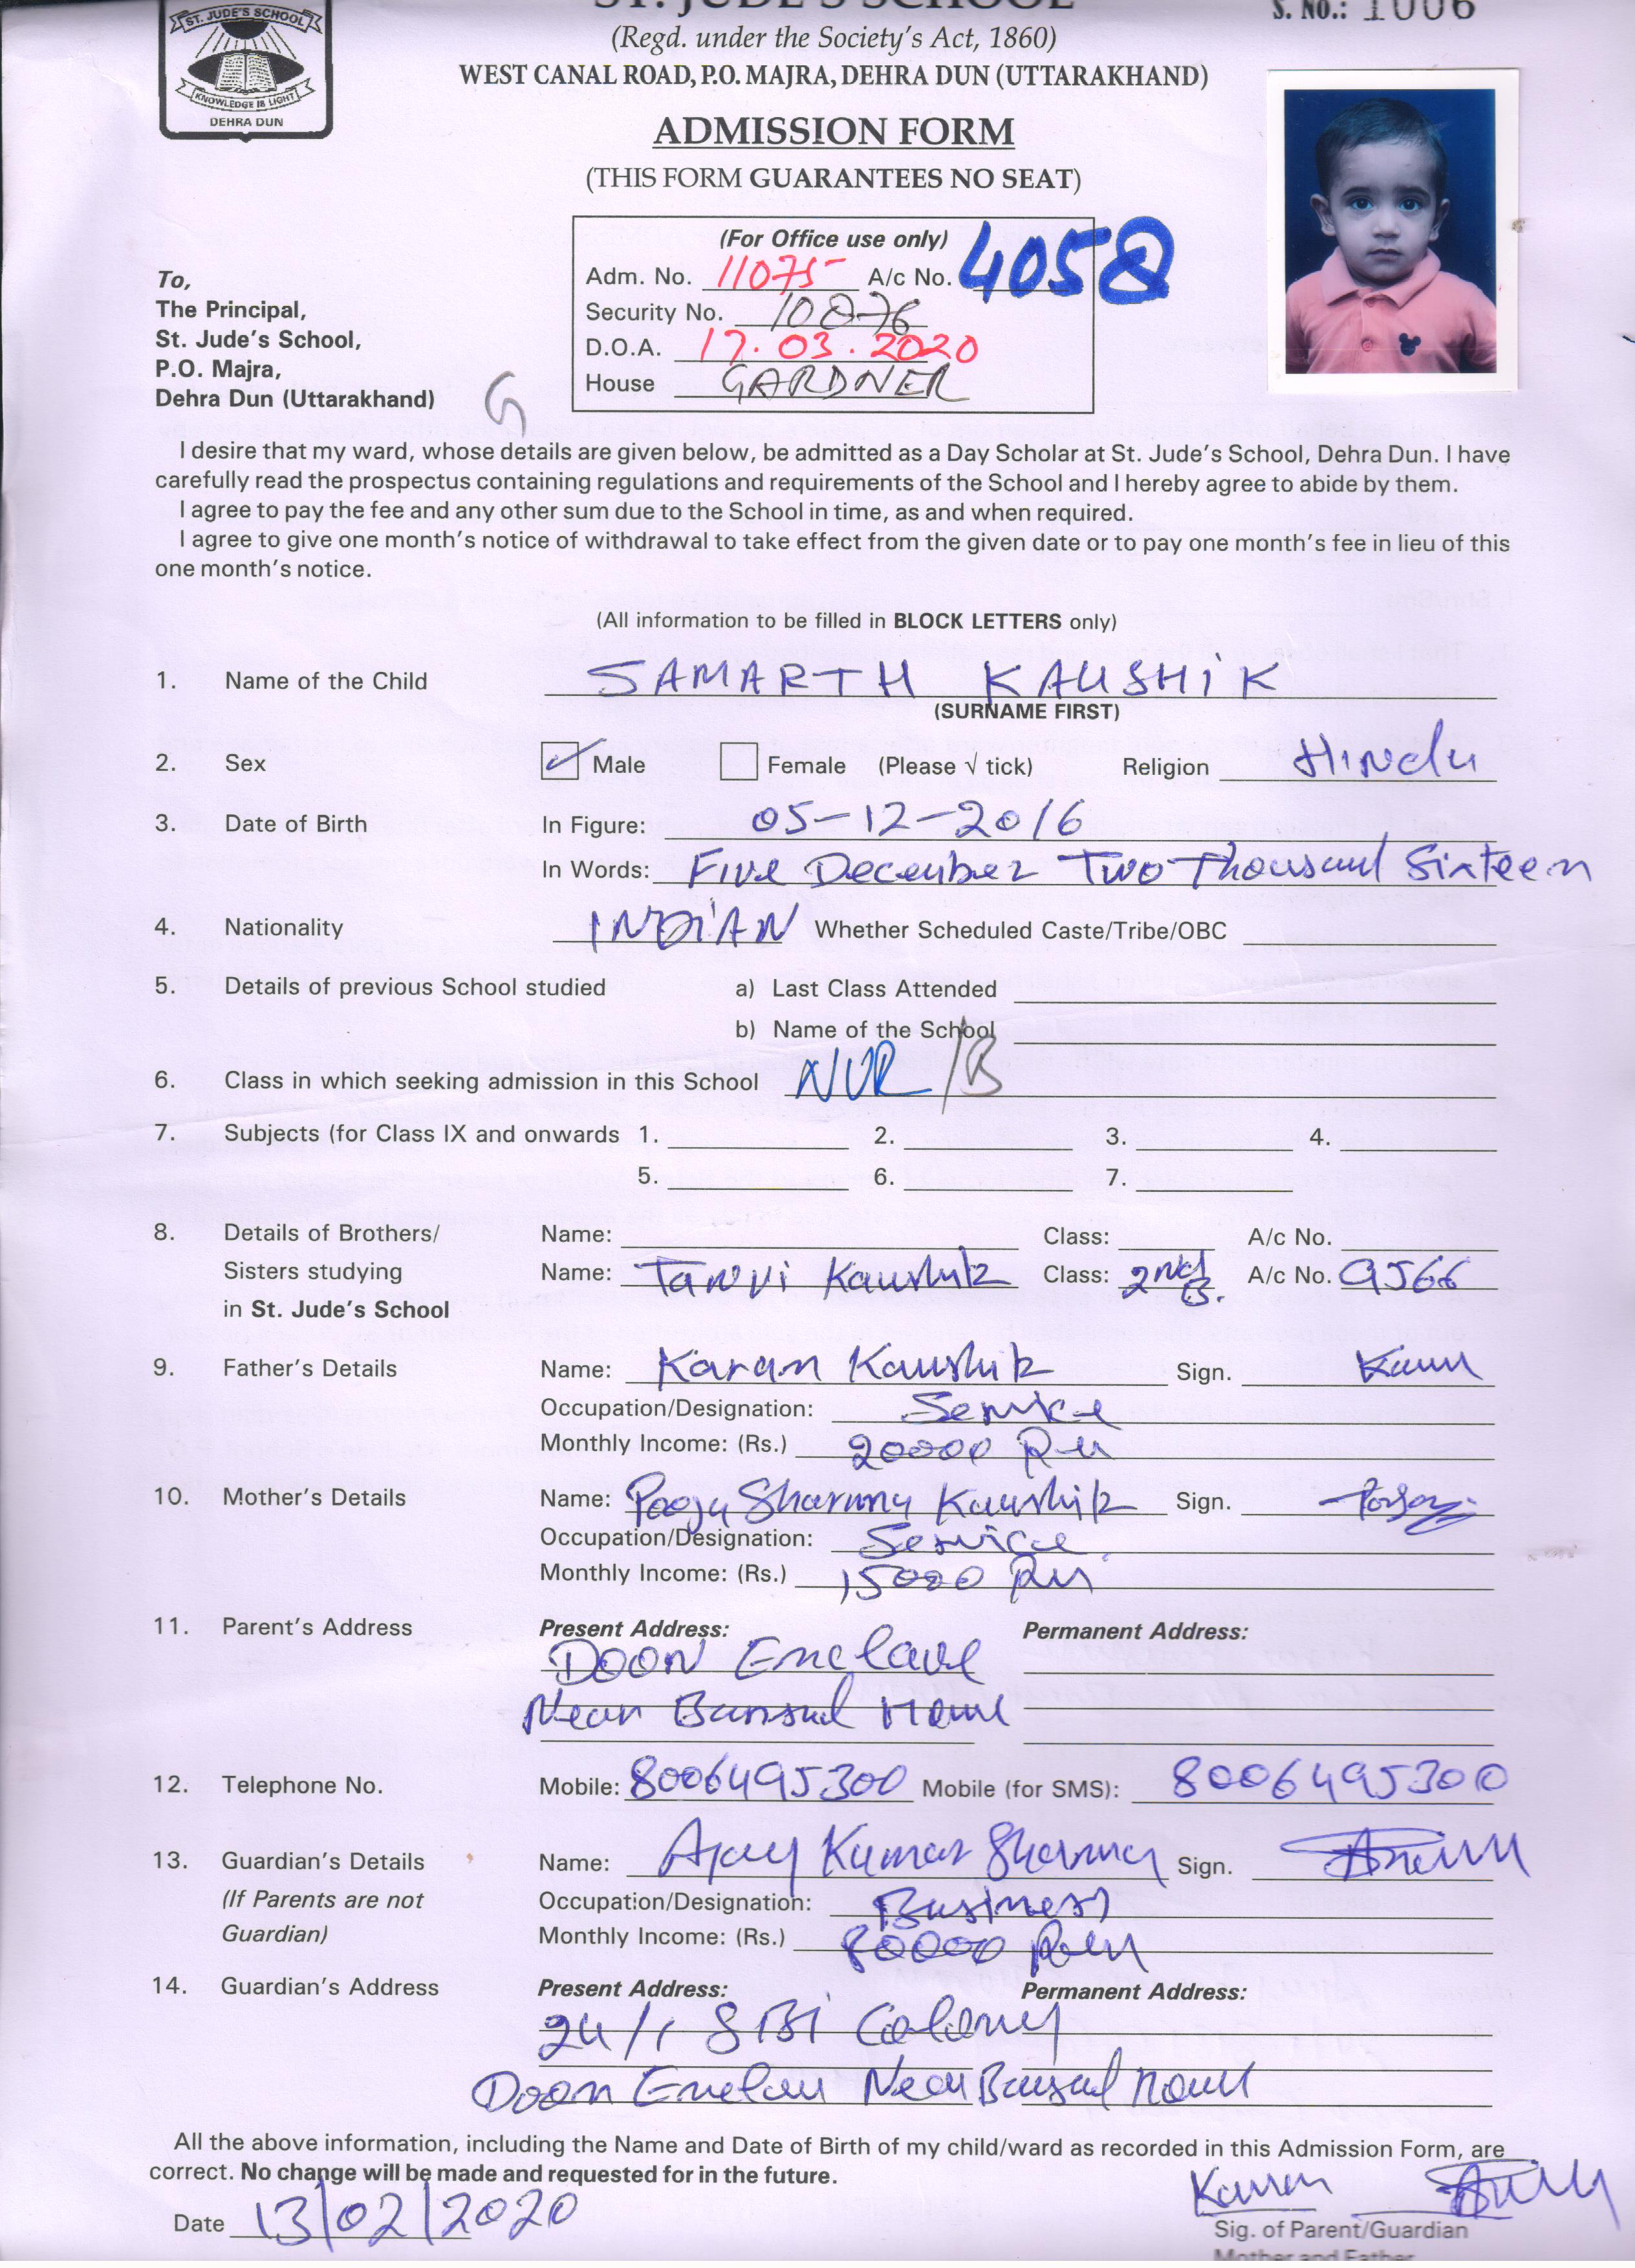 ST. JUDE'S SCHOOL
S. NO.: 1006
ST. JUDE'S SCHOOL
KNOWLEDGE IS LIGHT
DEHRA DUN
(Regd. under the Society's Act, 1860)
WEST CANAL ROAD, P.O. MAJRA, DEHRA DUN (UTTARAKHAND)
ADMISSION FORM
(THIS FORM GUARANTEES NO SEAT)
(For Office use only)
Adm. No. 11075 A/c No. 4058
Security No. 10876
D.O.A. 17.03.2020
House GARDNER
To,
The Principal,
St. Jude's School,
P.O. Majra,
Dehra Dun (Uttarakhand)
G
I desire that my ward, whose details are given below, be admitted as a Day Scholar at St. Jude's School, Dehra Dun. I have
carefully read the prospectus containing regulations and requirements of the School and I hereby agree to abide by them.
I agree to pay the fee and any other sum due to the School in time, as and when required.
I agree to give one month's notice of withdrawal to take effect from the given date or to pay one month's fee in lieu of this
one month's notice.
(All information to be filled in BLOCK LETTERS only)
1. Name of the Child SAMARTH KAUSHIK
(SURNAME FIRST)
2. Sex ✓ Male Female (Please √ tick) Religion Hindu
3. Date of Birth In Figure: 05-12-2016
In Words: Five December Two Thousand Sixteen
4. Nationality INDIAN Whether Scheduled Caste/Tribe/OBC
5. Details of previous School studied a) Last Class Attended
b) Name of the School
6. Class in which seeking admission in this School NUR/B
7. Subjects (for Class IX and onwards 1. 2. 3. 4.
5. 6. 7.
8. Details of Brothers/ Name: Class: A/c No.
Sisters studying Name: Tanvi Kaushik Class: 2nd B. A/c No. 9566
in St. Jude's School
9. Father's Details Name: Karan Kaushik Sign.
Occupation/Designation: Service
Monthly Income: (Rs.) 20000
10. Mother's Details Name: Pooja Sharma Kaushik Sign.
Occupation/Designation: Service
Monthly Income: (Rs.) 15000
11. Parent's Address Present Address: Permanent Address:
DOON Enclave
Near Bansal Home
12. Telephone No. Mobile: 8006495300 Mobile (for SMS): 8006495300
13. Guardian's Details Name: Ajay Kumar Sharma Sign.
(If Parents are not Occupation/Designation: Business
Guardian) Monthly Income: (Rs.) 80000
14. Guardian's Address Present Address: Permanent Address:
24/1 SBI Colony
Doon Enclave Near Bansal Home
All the above information, including the Name and Date of Birth of my child/ward as recorded in this Admission Form, are
correct. No change will be made and requested for in the future.
Date 13/02/2020 Karan
Sig. of Parent/Guardian
Mother and Father